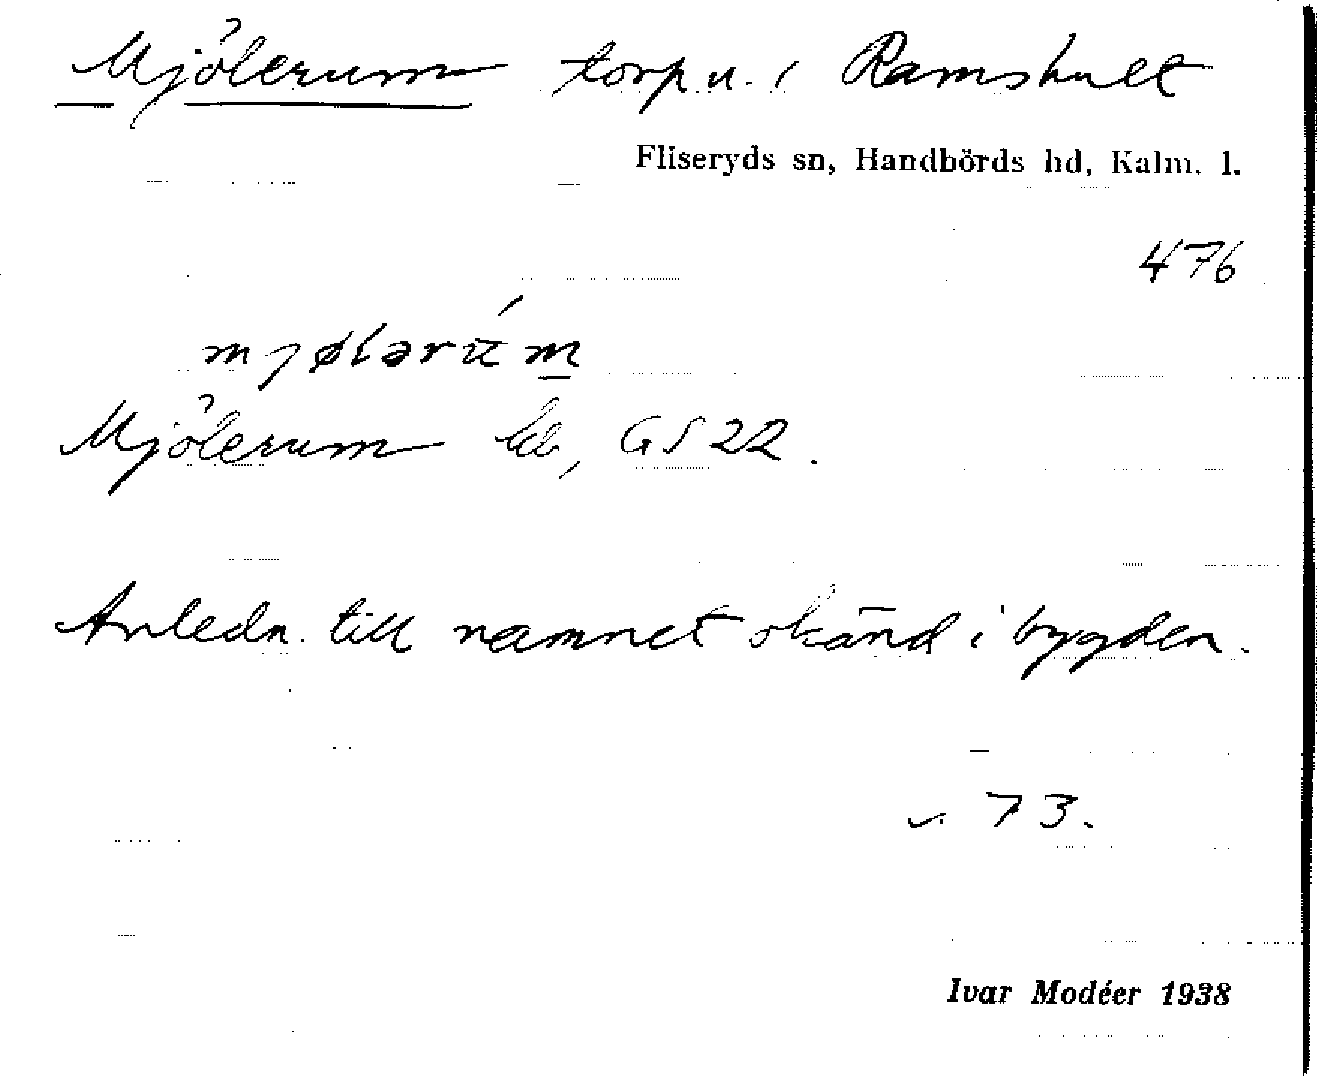 Mjölerum torp u. i Ramshult
Fliseryds sn, Handbörds hd, Kalm. l.
476
mjølərúm
Mjölerum kb, GS 22.
Anledn. till namnet okänd i bygden.
73.
Ivar Modéer 1938